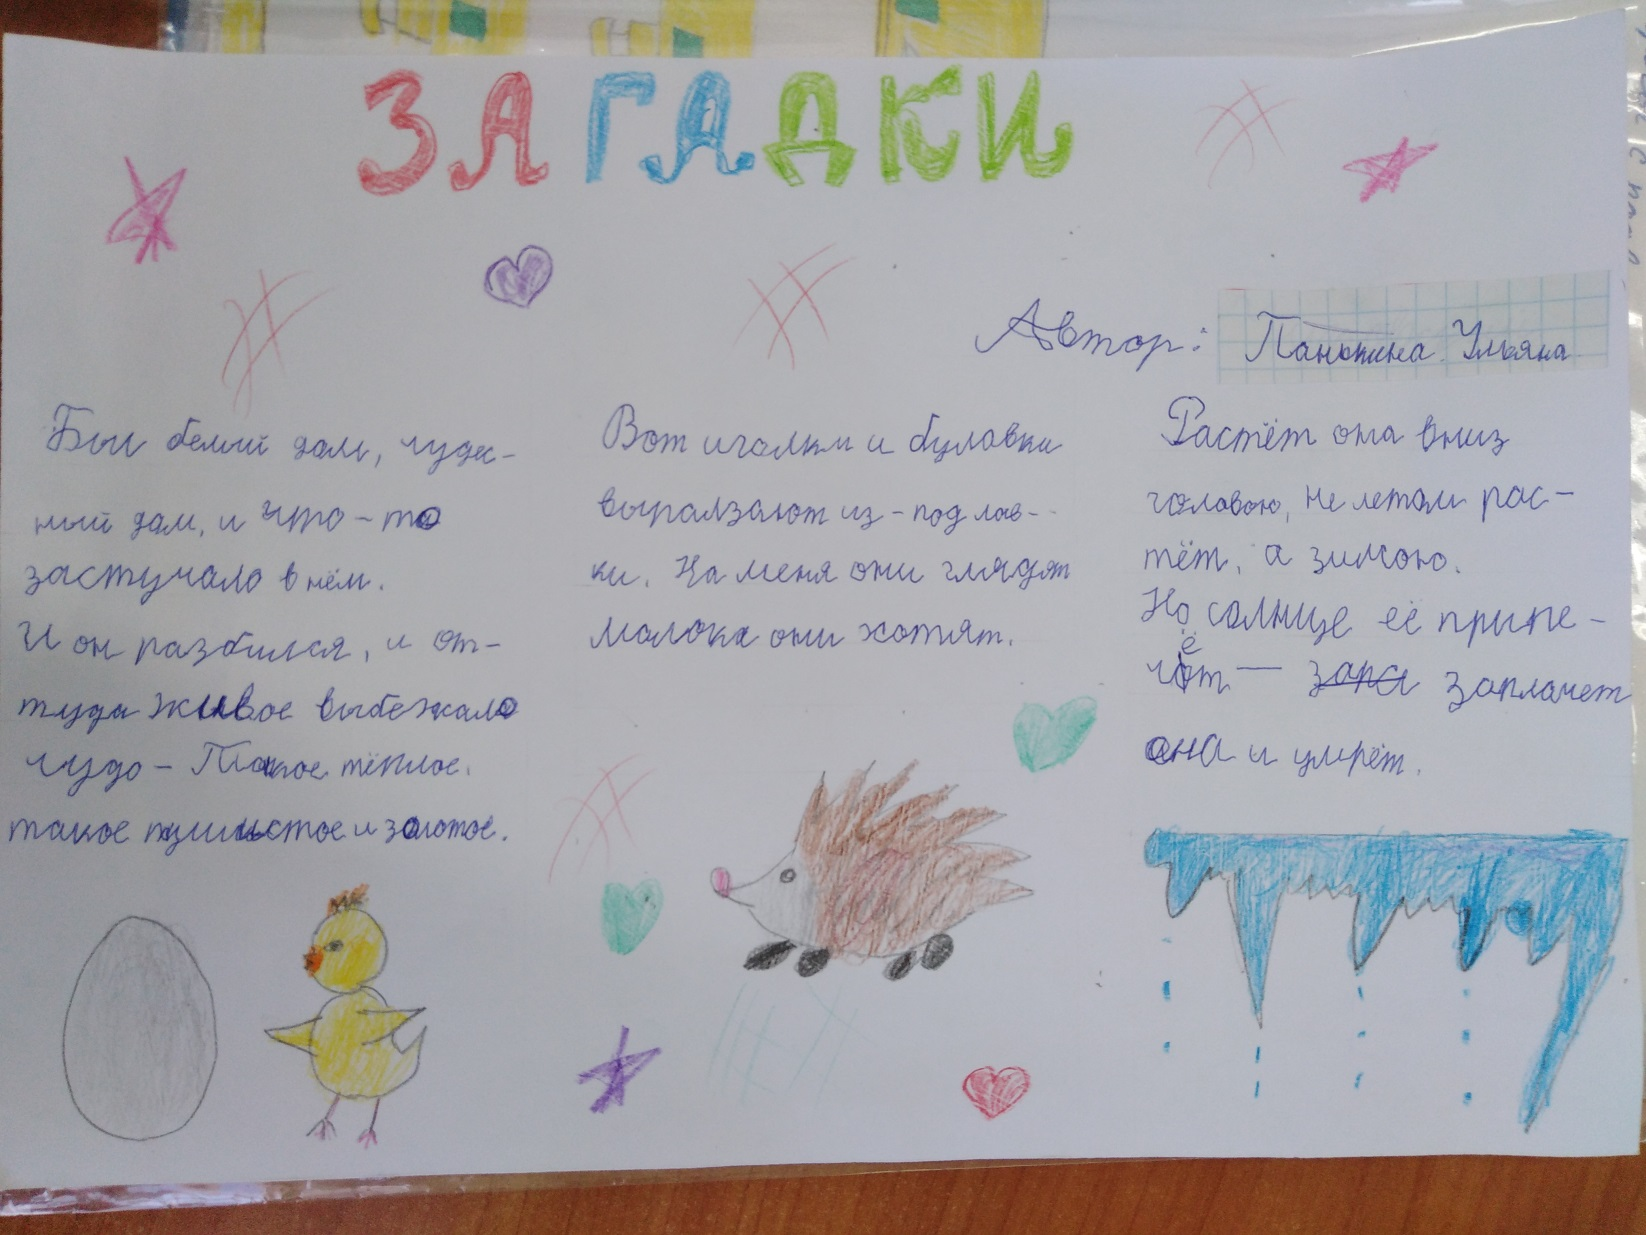 ЗАГАДКИ
Автор: Панькина Ульяна
Был белый дом, чудес-
ный дом, и что-то
застучало в нём.
И он разбился, и от-
туда живое выбежало
чудо - Такое тёплое,
такое пушистое и золотое.
Вот иголки и булавки
выползают из-под лав-
ки. На меня они глядят
молока они хотят.
Растёт она вниз
головою, не летом рас-
тёт, а зимою.
Но солнце её припе-
чёт — зара заплачет
она и умрёт.